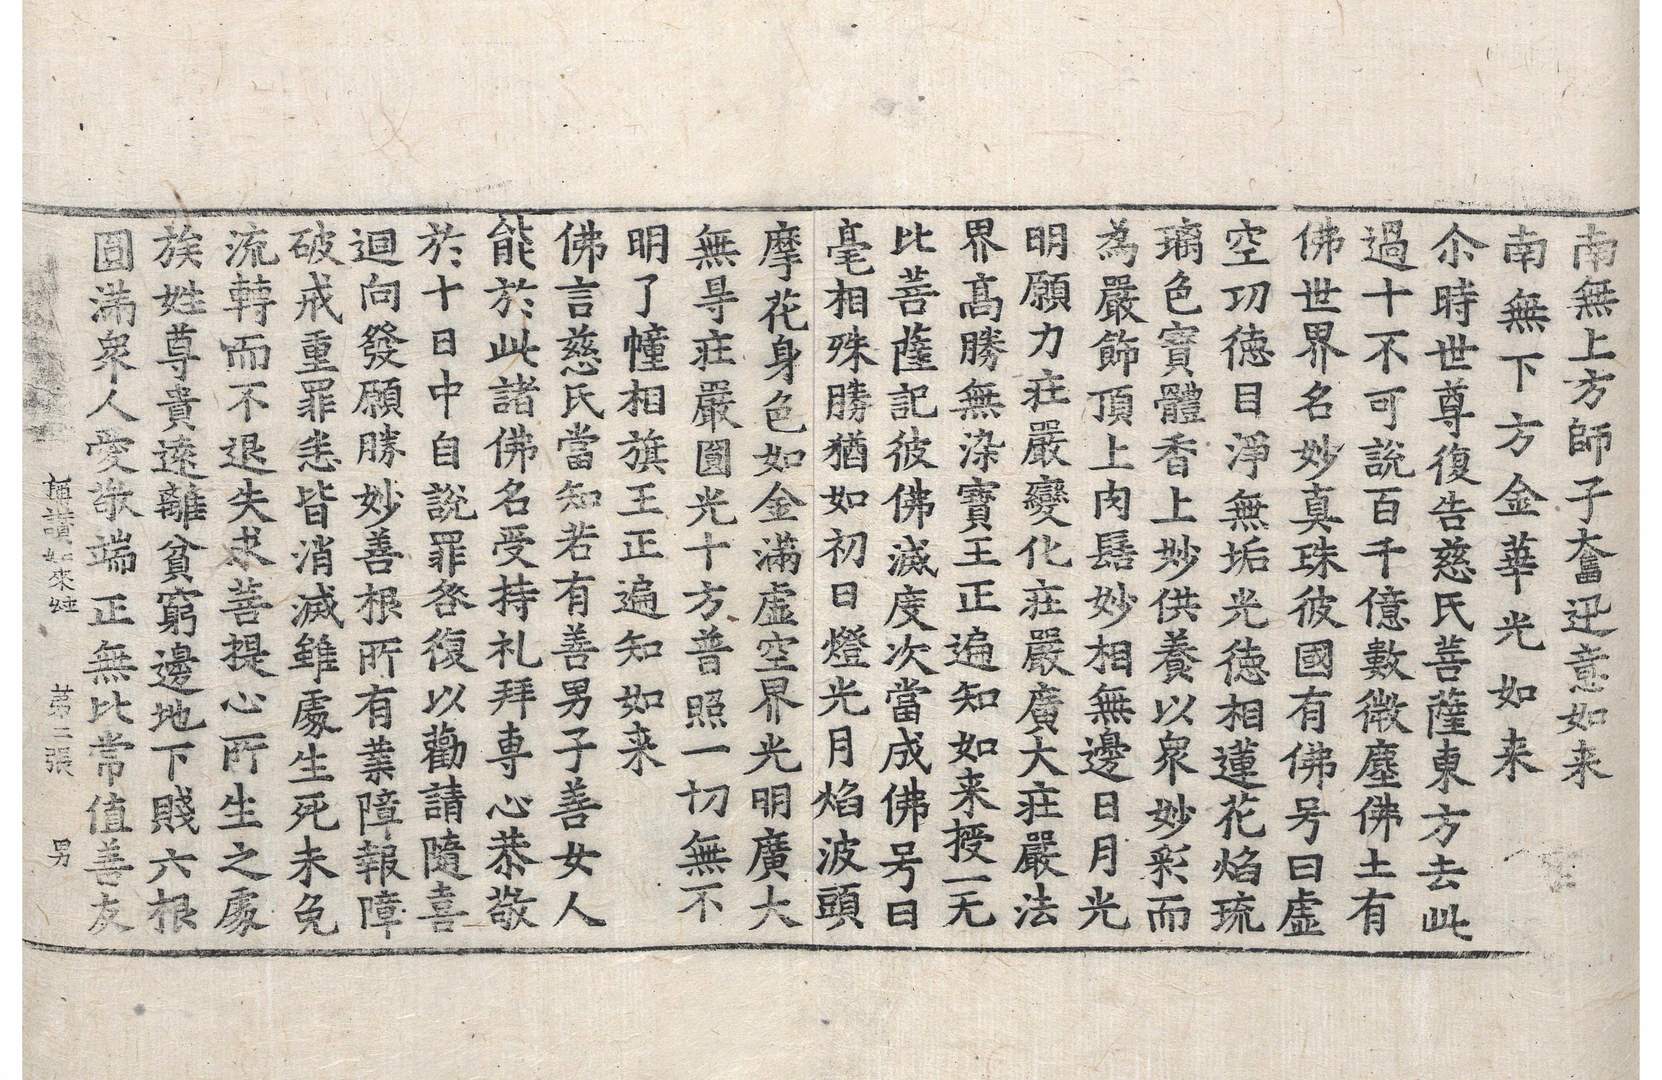 南無上方師子奮迅意如来
南無下方金華光如来
尒時世尊復告慈氏菩薩東方去此
過十不可說百千億數微塵佛土有
佛世界名妙真珠彼國有佛号曰虛
空功德目淨無垢光德相蓮花焰琉
璃色寶體香上妙供養以衆妙彩而
為嚴飾頂上肉髻妙相無邊日月光
明願力莊嚴變化莊嚴廣大莊嚴法
界髙勝無染寶王正遍知如来授一无
比菩薩記彼佛滅度次當成佛号曰
毫相殊勝猶如初日燈光月焰波頭
摩花身色如金滿虛空界光明廣大
無㝵莊嚴圓光十方普照一切無不
明了幢相旗王正遍知如来
佛言慈氏當知若有善男子善女人
能於此諸佛名受持礼拜專心恭敬
於十日中自說罪咎復以勸請隨喜
迴向發願勝妙善根所有業障報障
破戒重罪悉皆消滅雖處生死未免
流轉而不退失求菩提心所生之處
族姓尊貴遠離貧窮邊地下賤六根
圓滿衆人愛敬端正無比常值善友
稱讃如來経 苐三張 男